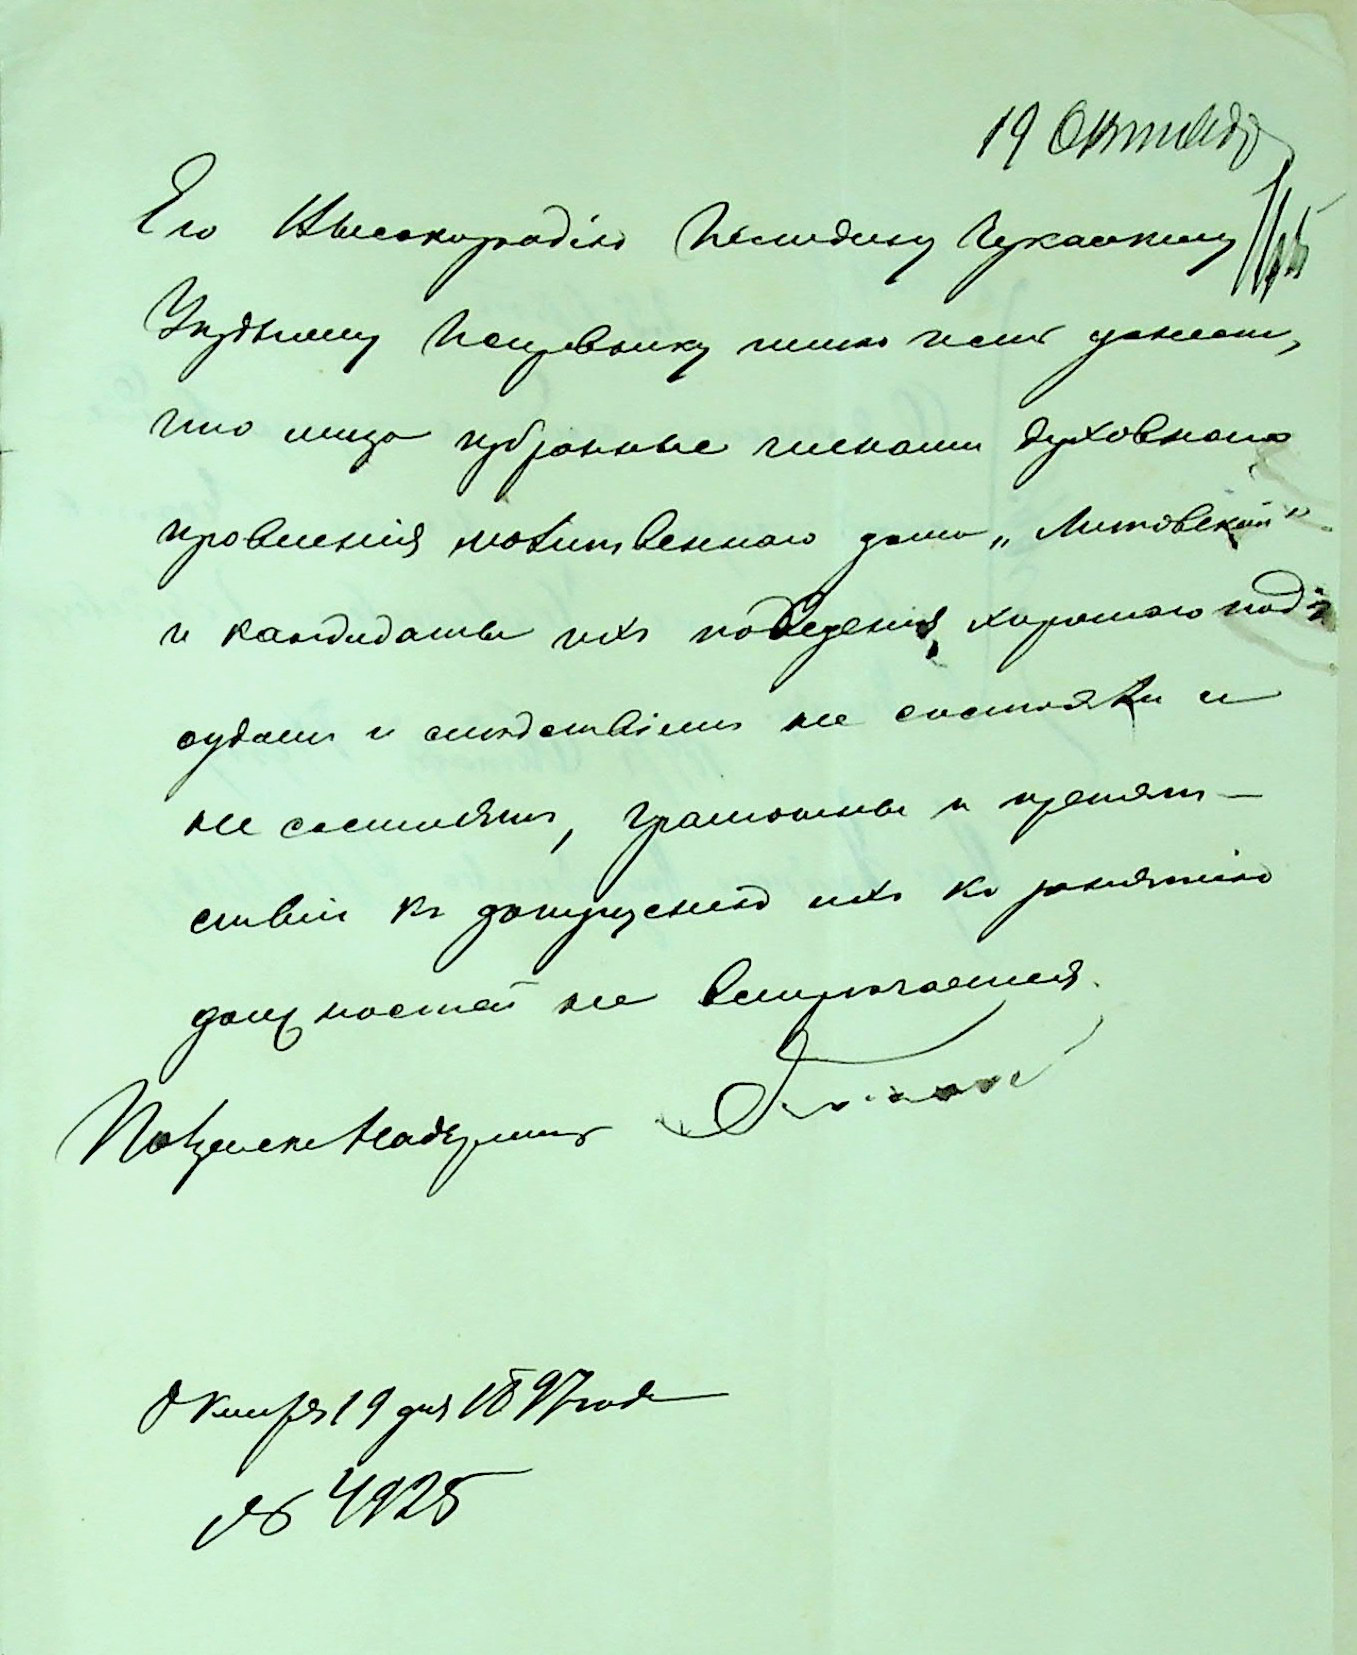 19 Октября
Его Высокородію Господину Черкасскому
Уѣздному Исправнику имѣю честь донести,
что лица избранные членами духовнаго
правленія молитвеннаго дома „Литовскій"
и кандидаты ихъ поведенія хорошаго подъ
судомъ и слѣдствіемъ не состояли и
не состоятъ, грамотны и препят-
ствій къ допущенію ихъ къ занятію
должностей не встрѣчается.
Полицейскій Надзиратель
Октября 19 дня 1897 года
№ 4925